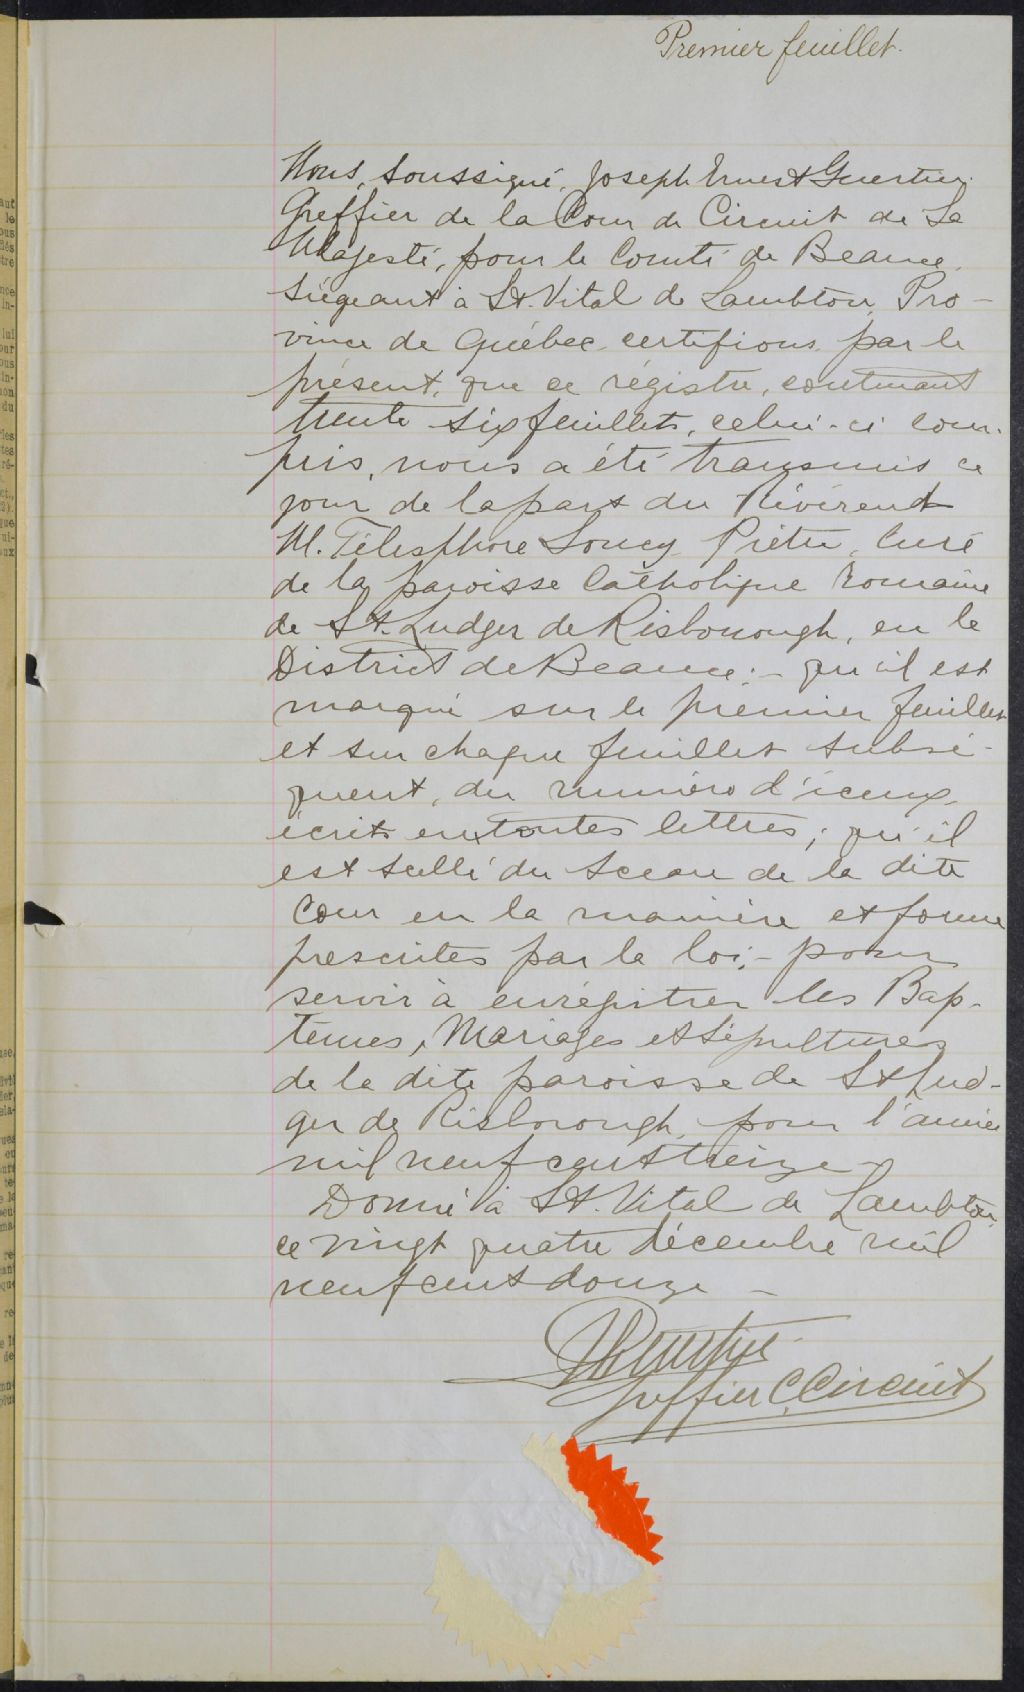 Premier feuillet.
Nous, soussigné, Joseph Ernest Guertin,
Greffier de la Cour de Circuit de Sa
Majesté, pour le Comté de Beauce,
siégeant à St. Vital de Lambton, Pro-
vince de Québec, certifions par le
présent, que ce régistre, contenant
trente six feuillets, celui-ci com-
pris, nous a été transmis ce
jour de la part du Révérend
M. Télesphore Soucy Prêtre, Curé
de la paroisse Catholique Romaine
de St. Ludger de Risborough, en le
District de Beauce:- qu'il est
marqué sur le premier feuillet
et sur chaque feuillet subsé-
quent, du numéro d'iceux,
écrits en toutes lettres; qu'il
est scellé du Sceau de la dite
Cour en la manière et forme
prescrites par la loi;- pour
servir à enrégistrer les Bap-
têmes, Mariages et Sépultures
de la dite paroisse de St Lud-
ger de Risborough, pour l'année
mil neuf cent treize -
Donné à St. Vital de Lambton,
ce vingt quatre décembre mil
neuf cent douze -
Guertin
Greffier C. Circuit